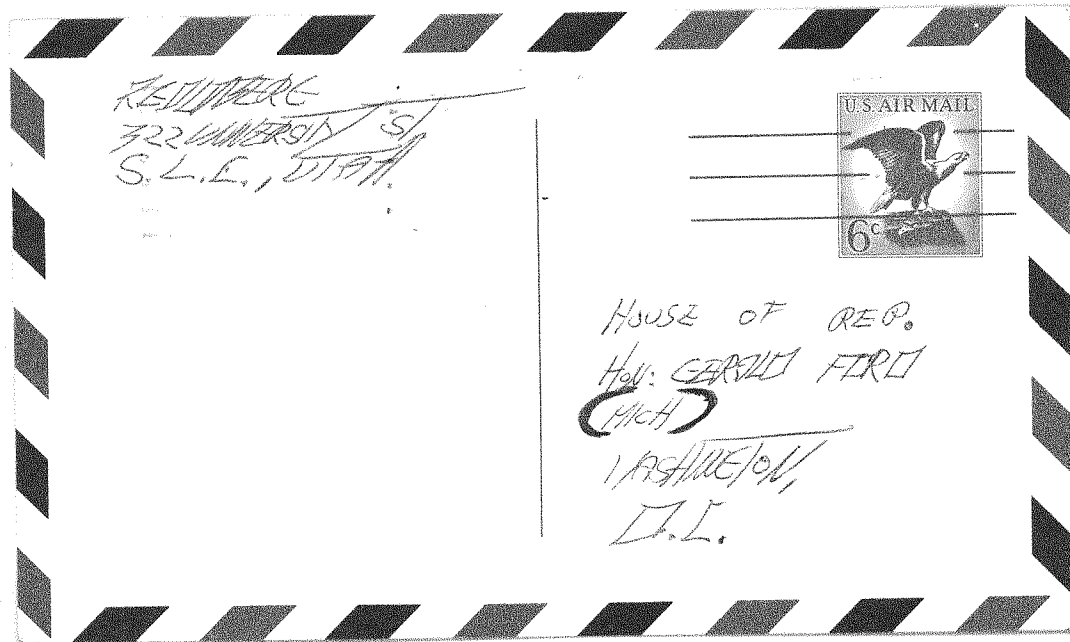 322 UNIVERSITY ST
S.L.C., UTAH.
U.S. AIR MAIL
6c
HOUSE OF REP.
HON: GERALD FORD
(MICH)
WASHINGTON,
D.C.